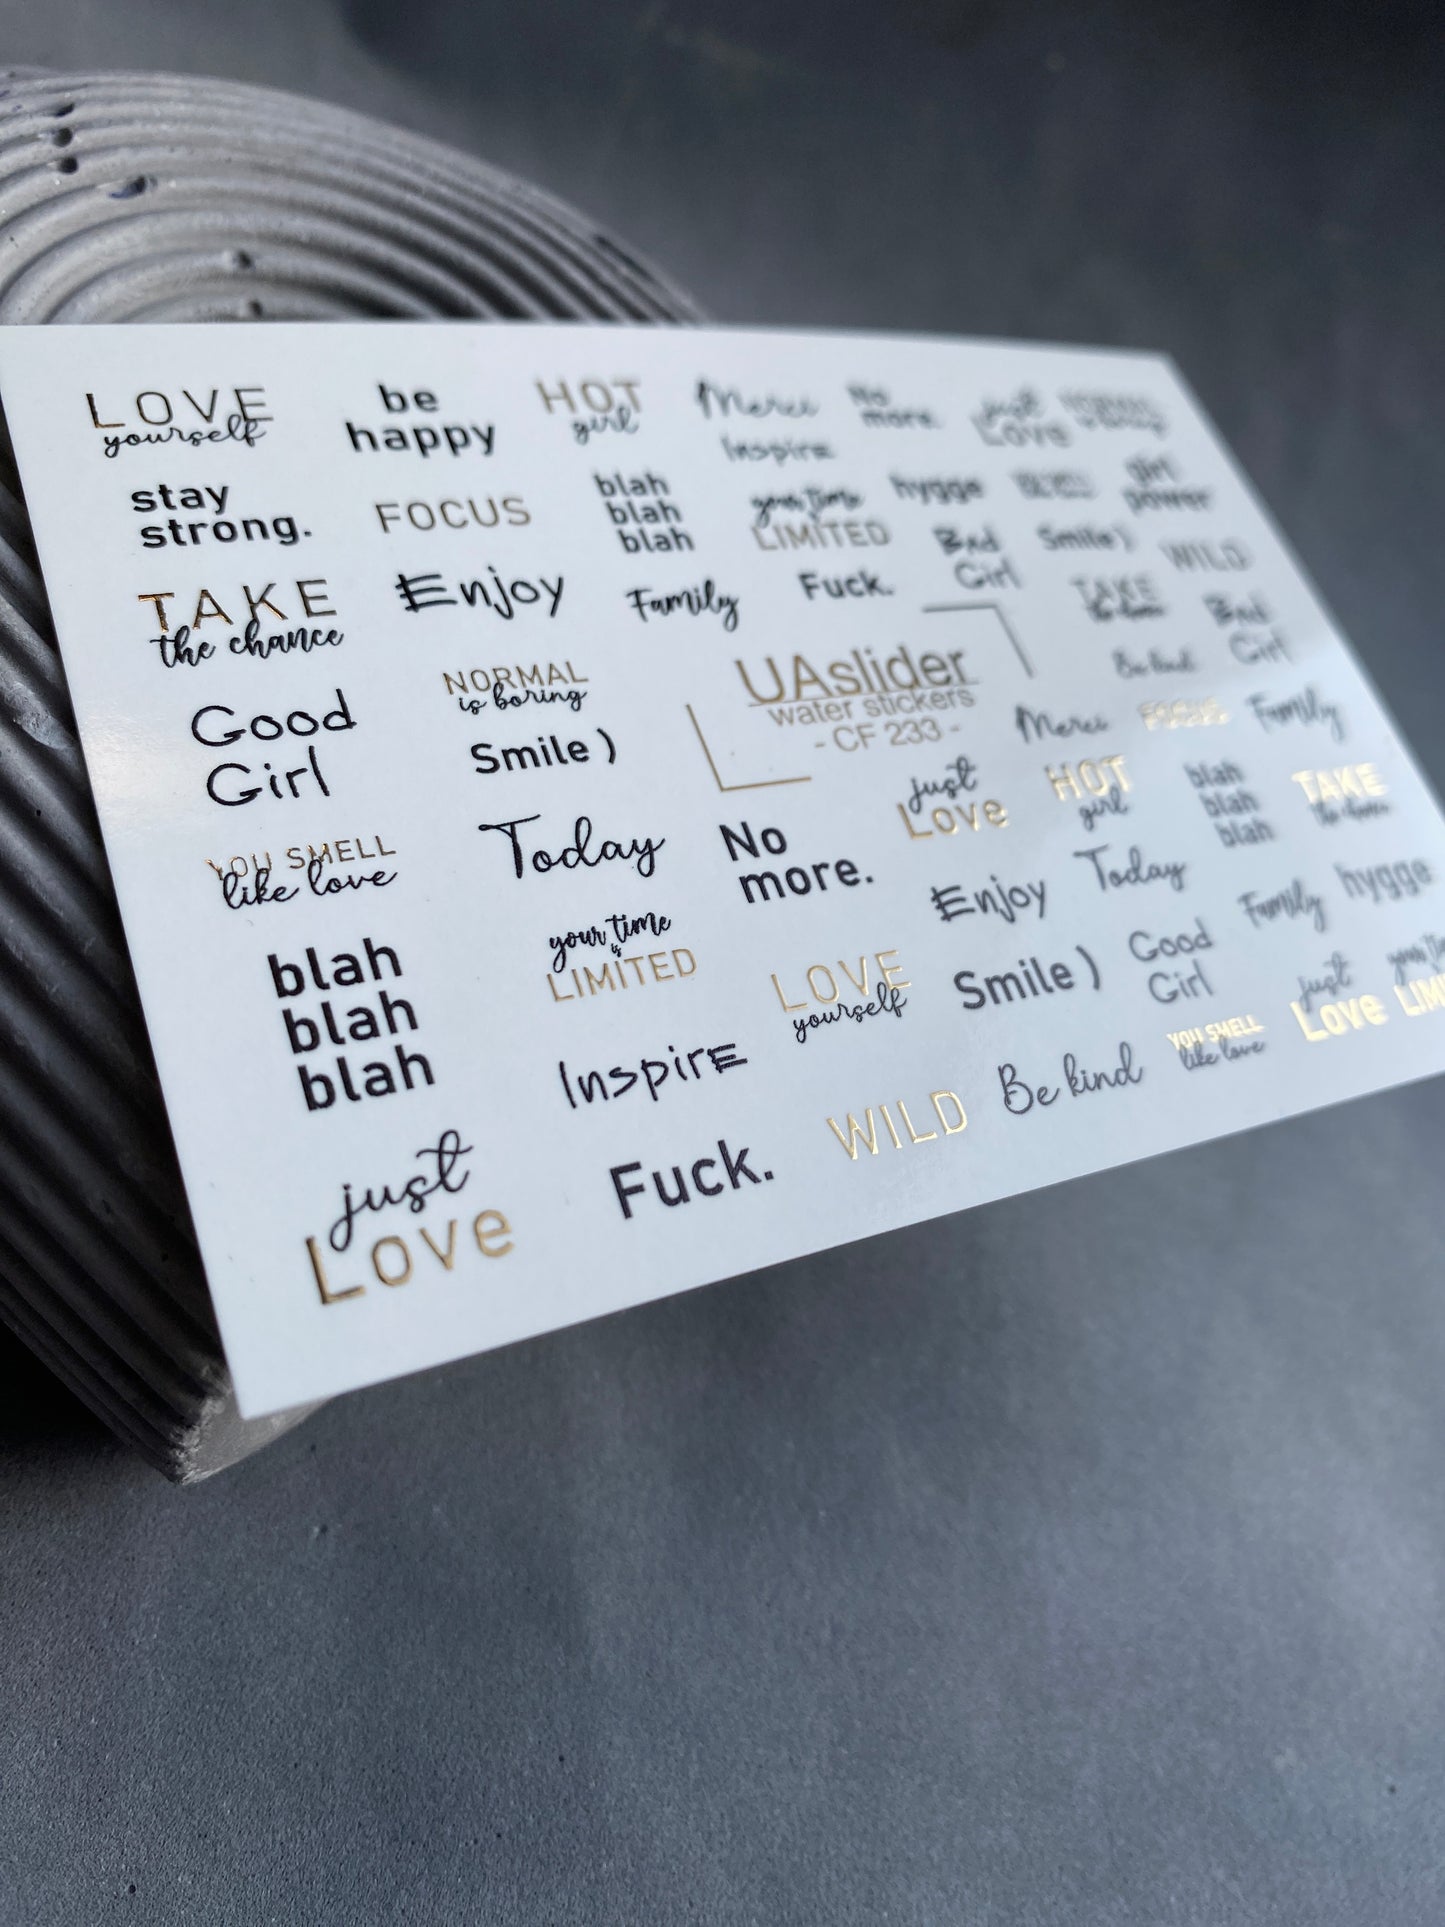 LOVE
yourself
be
happy
HOT
girl
Merci
No
more.
just
Love
Inspire
stay
strong.
FOCUS
blah
blah
blah
your time
LIMITED
hygge
girl
power
Bad
Girl
Smile )
WILD
TAKE
the chance
Enjoy
Family
Fuck.
TAKE
the chance
Bad
Girl
Be kind
Good
Girl
NORMAL
is boring
Smile )
UAslider
water stickers
- CF 233 -
Merci
FOCUS
Family
YOU SMELL
like love
Today
No
more.
just
Love
HOT
girl
blah
blah
blah
TAKE
the chance
blah
blah
blah
your time
is
LIMITED
Enjoy
Today
Family
hygge
Inspire
LOVE
yourself
Smile )
Good
Girl
just
Love
just
Love
Fuck.
WILD
Be kind
YOU SMELL
like love